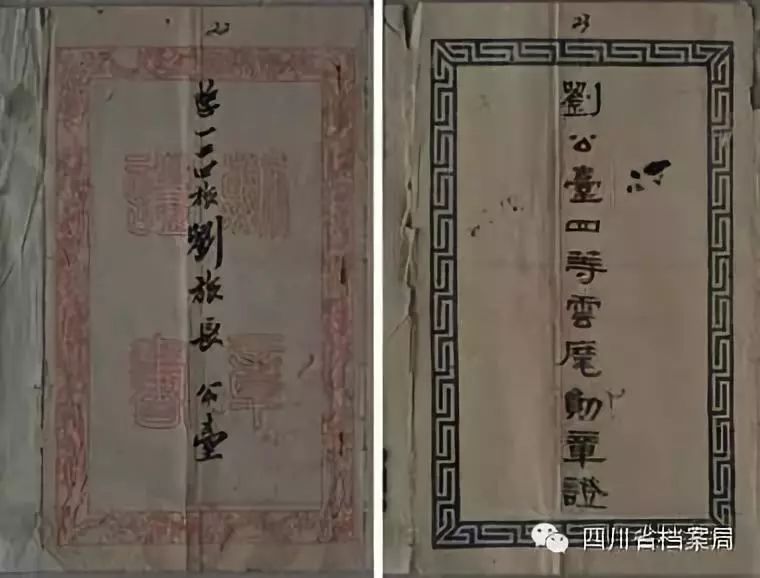 22
旅劉旅長 公臺
章
書
23
劉公臺四等雲麾勛章證
四川省档案局